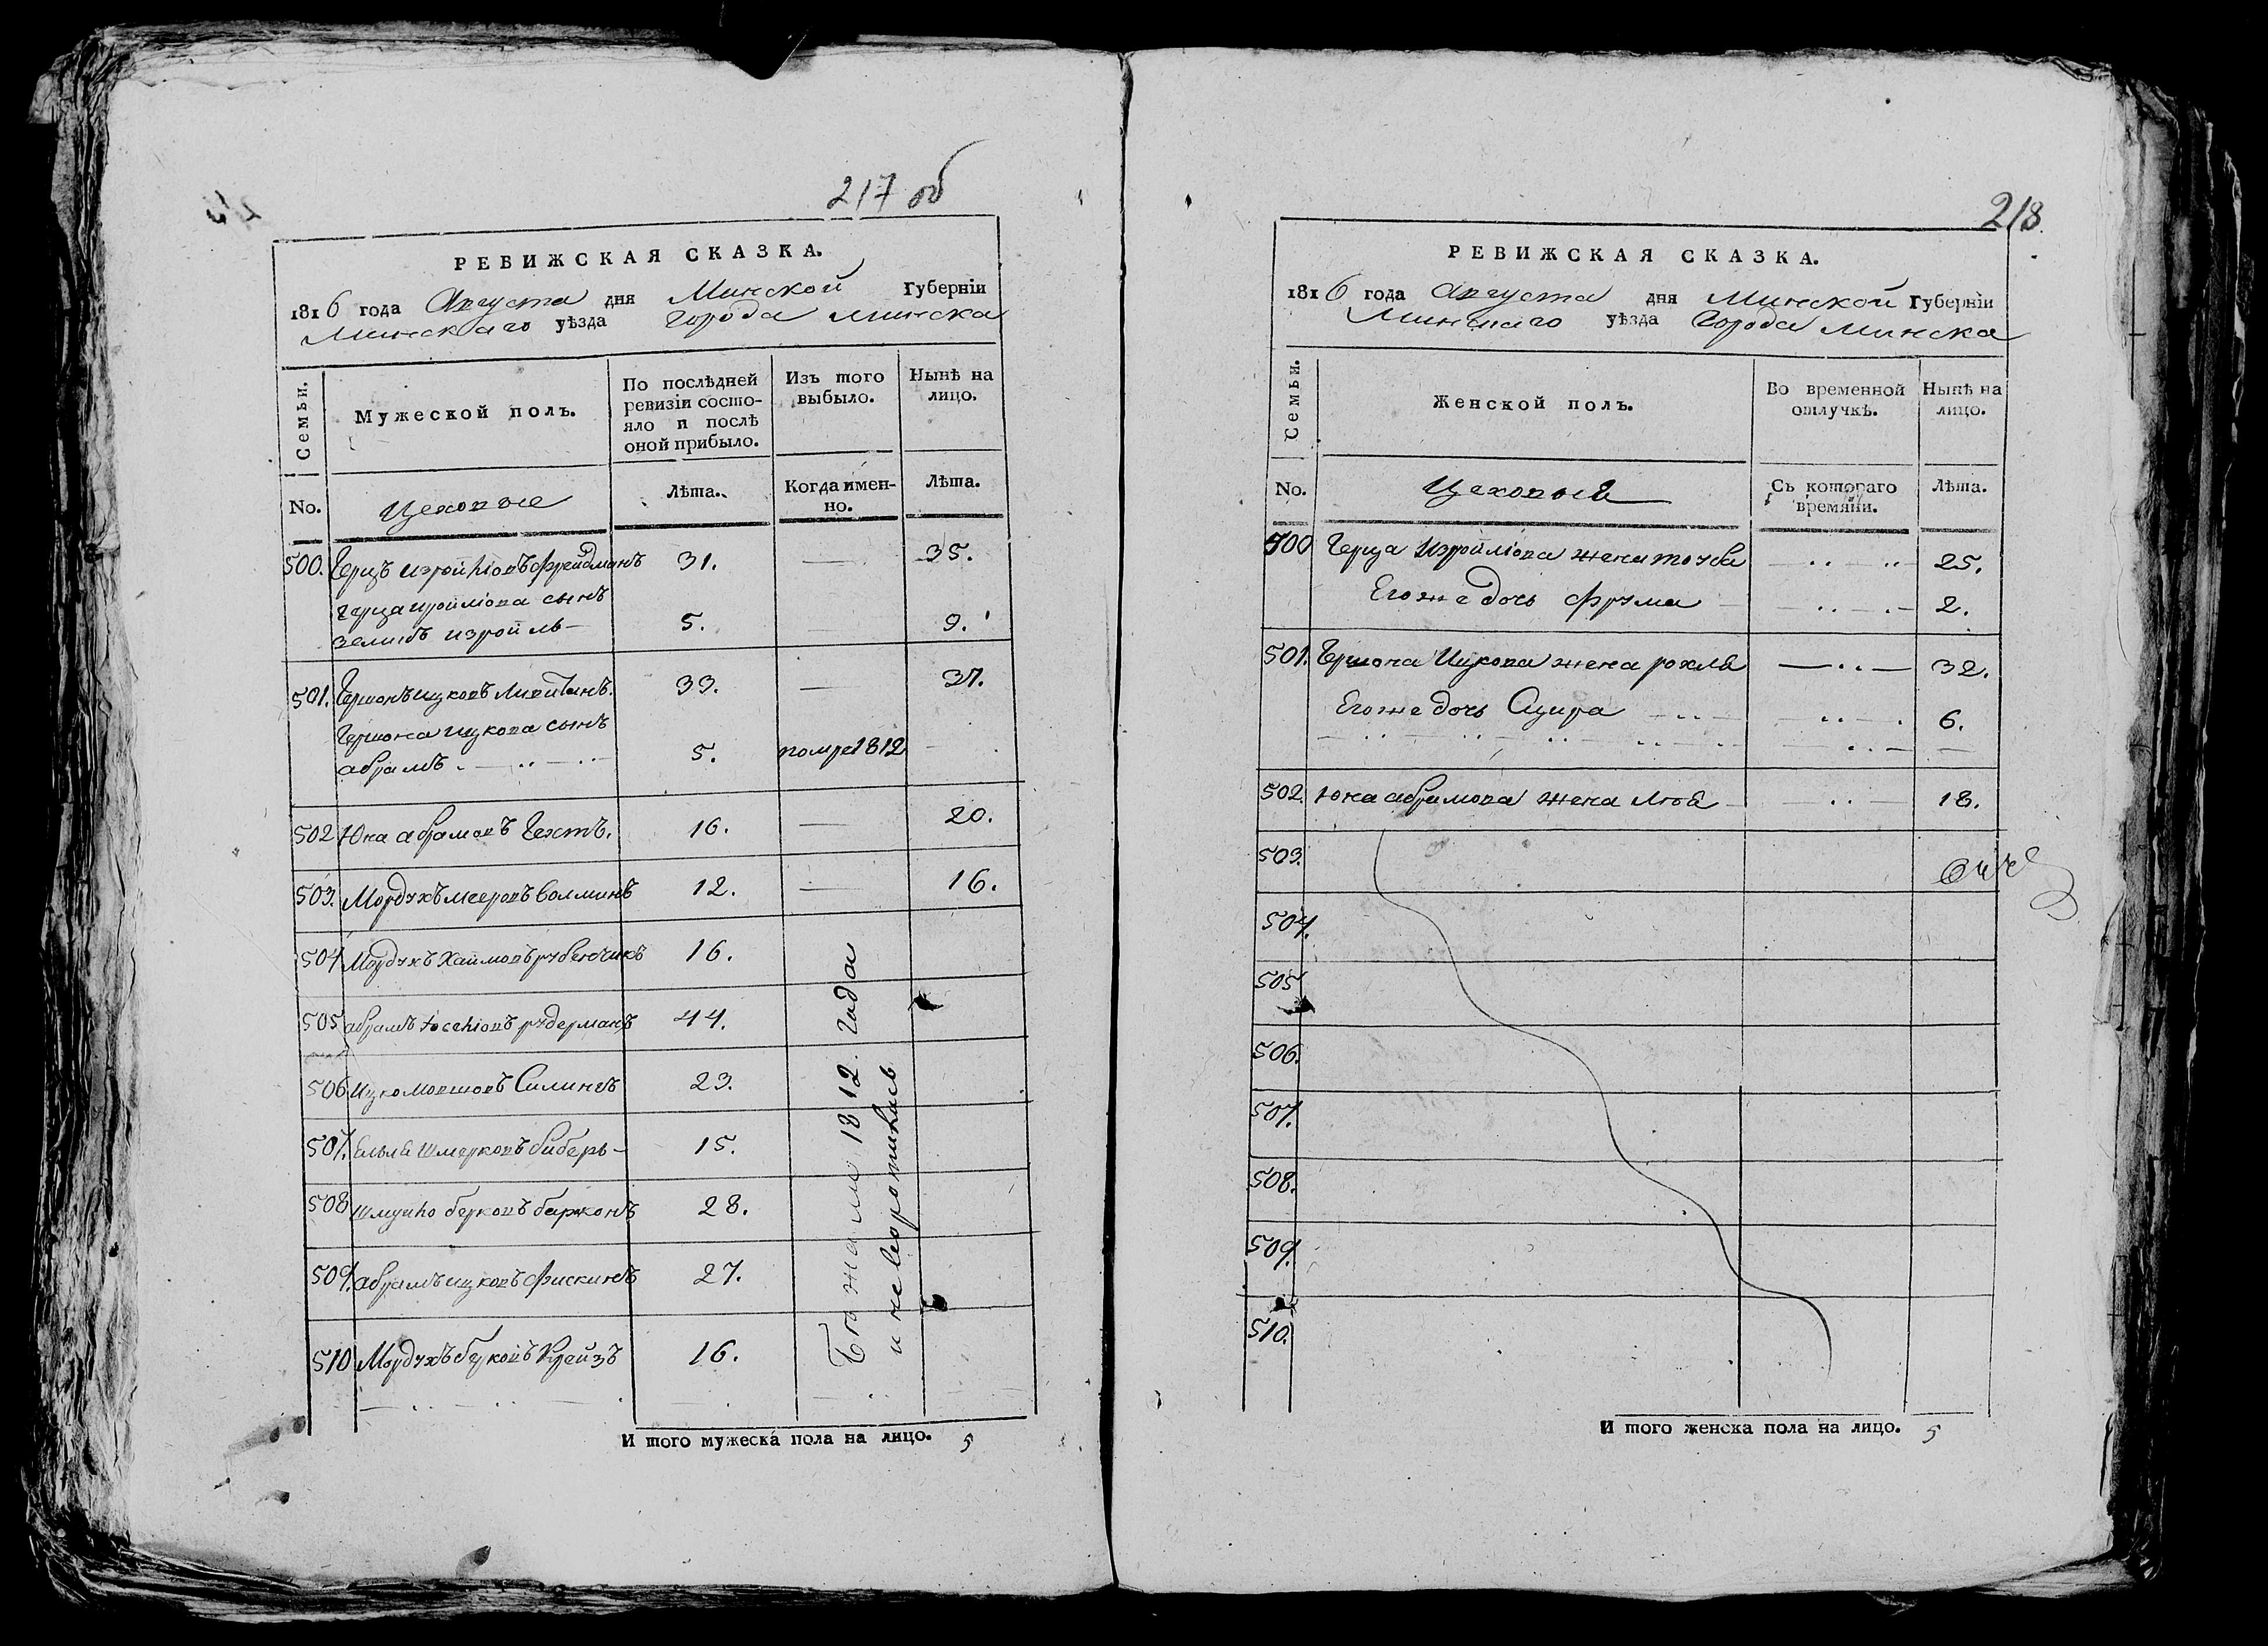 217 об
РЕВИЖСКАЯ СКАЗКА.
1816 года Августа дня Минской Губерніи
Минскаго уѣзда Города Минска
Семьи.
Мужеской полъ.
По послѣдней ревизіи состо-
яло и послѣ оной прибыло.
Изъ того выбыло.
Нынѣ на лицо.
No.
Цеховые
Лѣта.
Когда имен-
но.
Лѣта.
500. Герцъ Изройліовъ Фрейдманъ 31. — 35.
Герца Изройліова сынъ
Зеликъ Изройль — 5. — 9.
501. Гершонъ Ицковъ 33. — 37.
Гершона Ицкова сынъ
абрамъ 5. помре 1812 —
502 Юна абрамовъ 16. — 20.
503. Мордухъ Мееровъ 12. — 16.
504 Мордухъ Хаимовъ рубенчикъ 16.
505 абрамъ рудерманъ 44.
506 Ицко Мовшовъ 23.
507. Шмерковъ биберъ — 15.
508 Шмуйло берковъ 28.
509. абрамъ ицковъ Фискинъ 27.
510 Мордухъ берковъ Крейзъ 16.
Бежали 1812. Года
и невозвратились
И того мужеска пола на лицо. 5
218.
РЕВИЖСКАЯ СКАЗКА.
1816 года Августа дня Минской Губерніи
Минскаго уѣзда Города Минска
Семьи.
Женской полъ.
Во временной отлучкѣ.
Нынѣ на лицо.
No.
Цеховыя
Съ котораго времяни.
Лѣта.
500 Герца Изройліова жена 25.
Его же дочь Фрума 2.
501. Гершона Ицкова жена рохля 32.
Его же дочь 6.
502. Юна абрамова жена 18.
503.
504.
505
506.
507.
508.
509.
510.
И того женска пола на лицо. 5